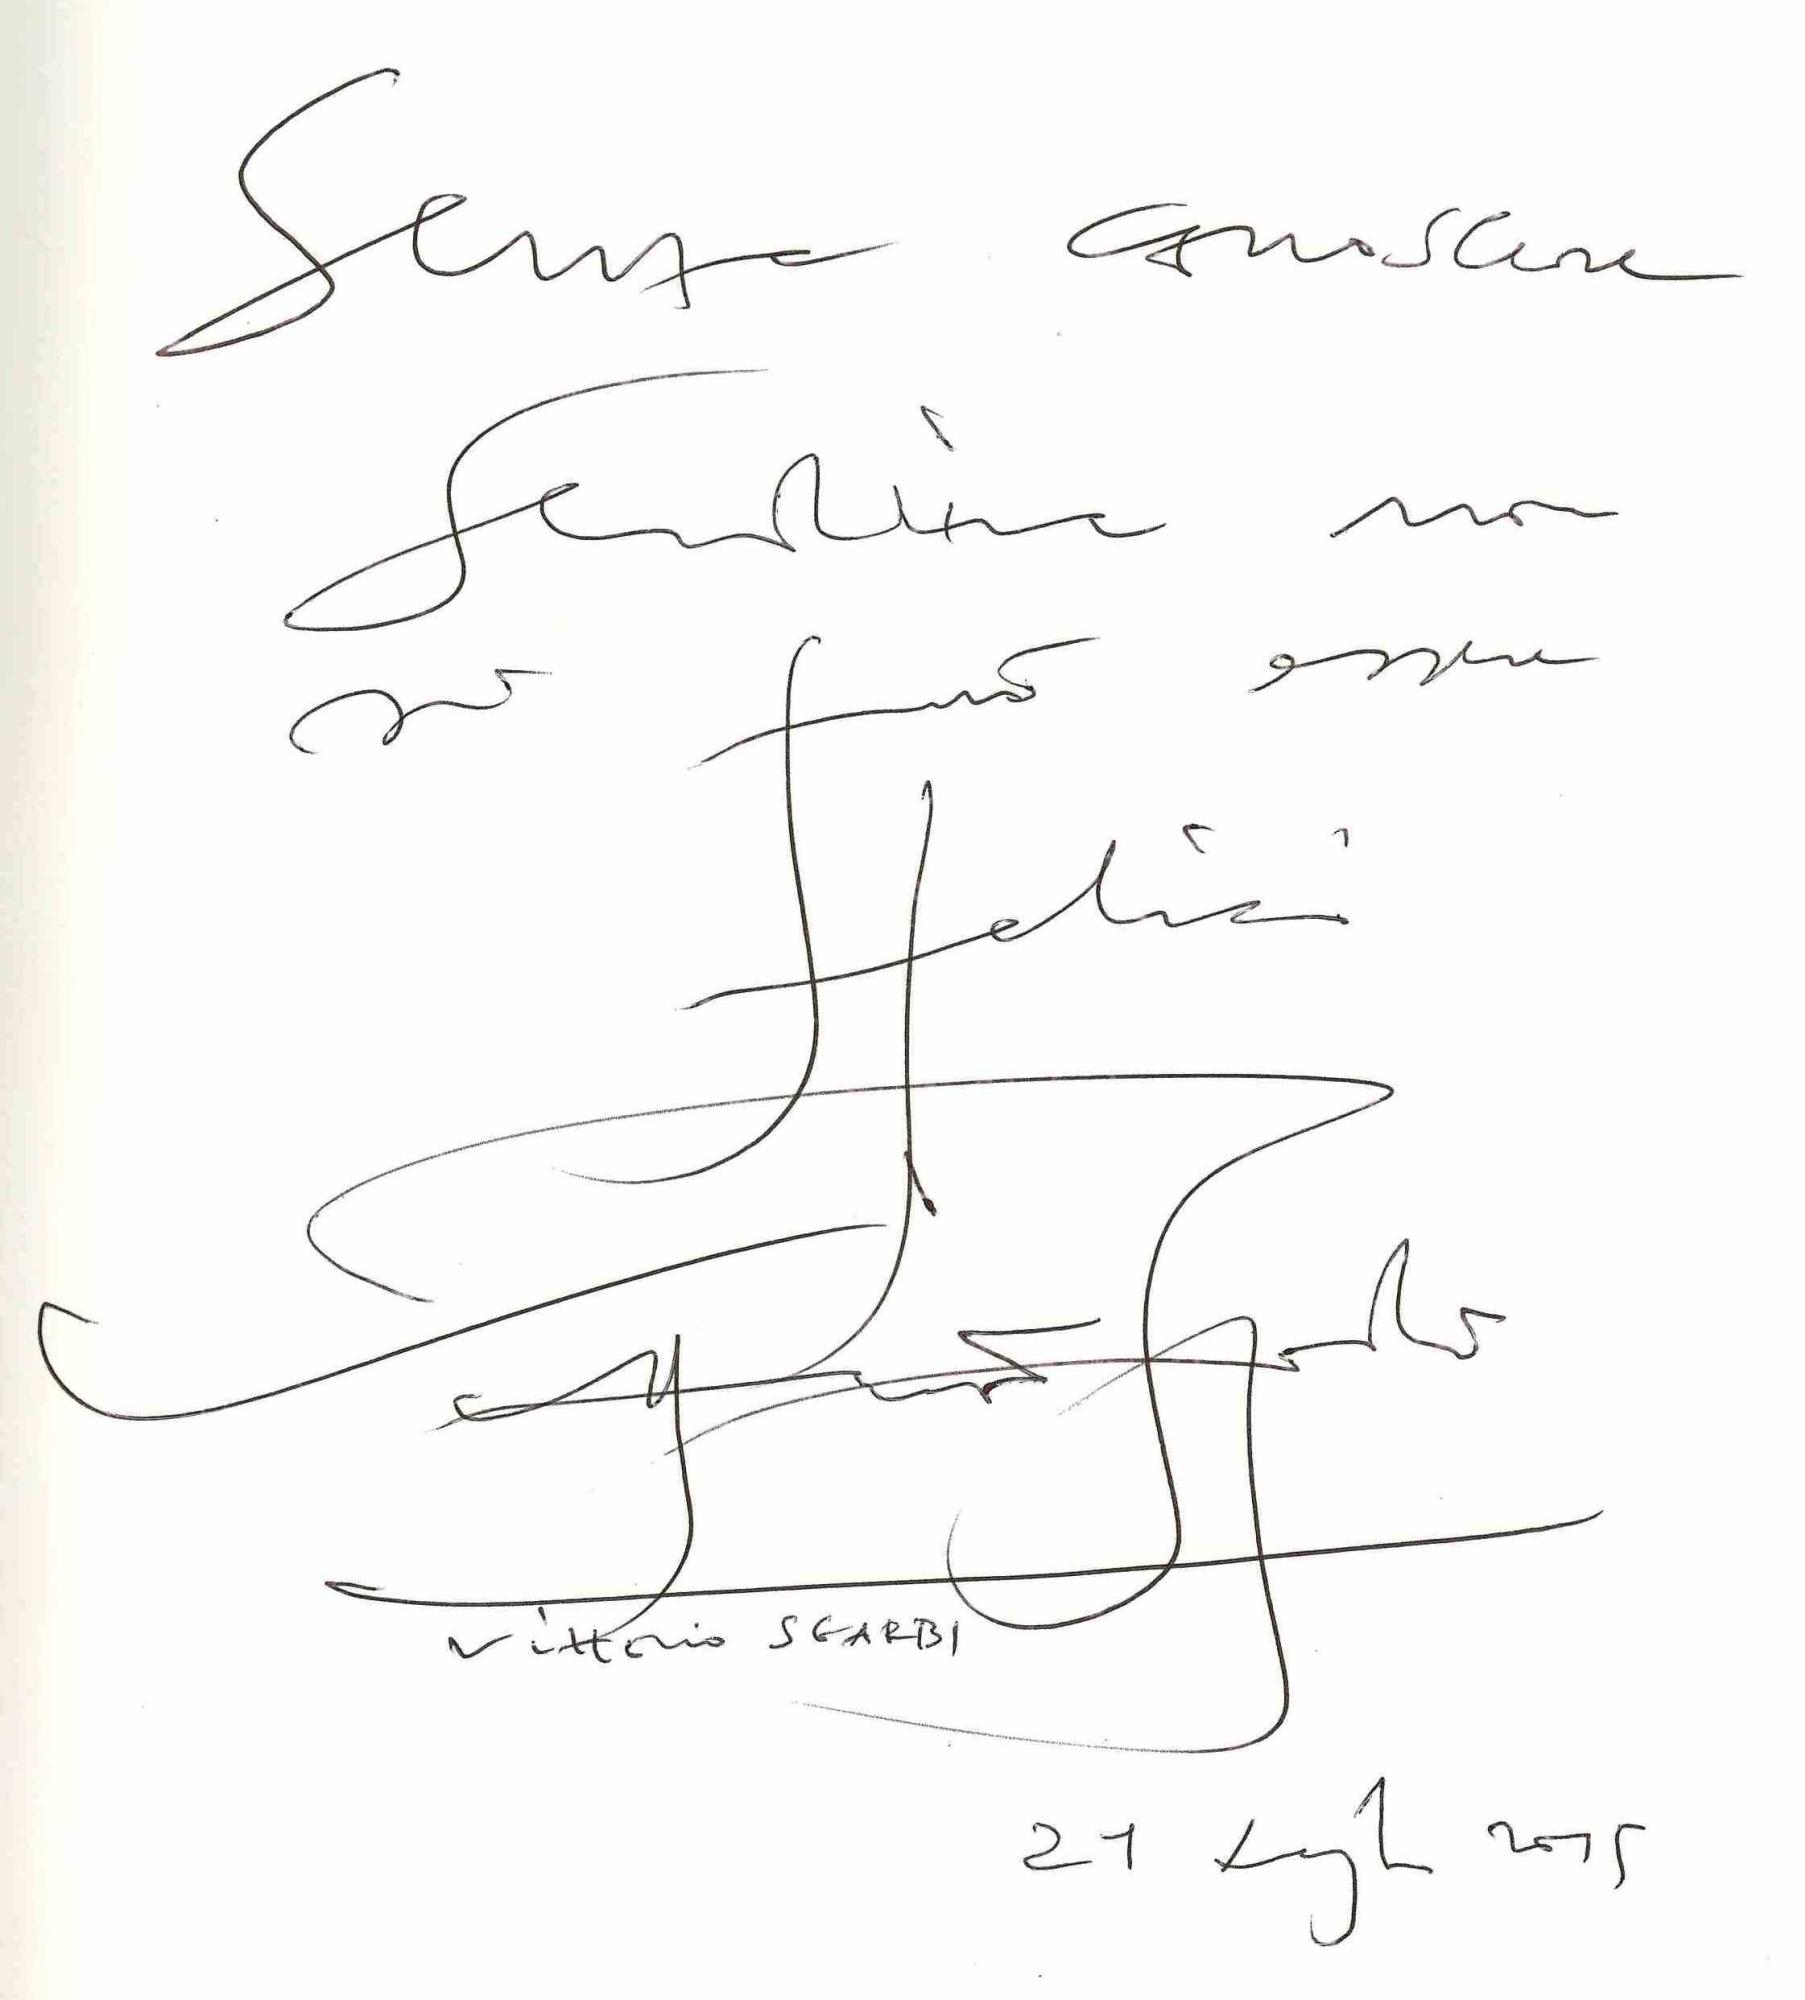 Senza conoscere
non
può essere
felici
Vittorio Sgarbi
Vittorio SGARBI
21 Luglio 2015